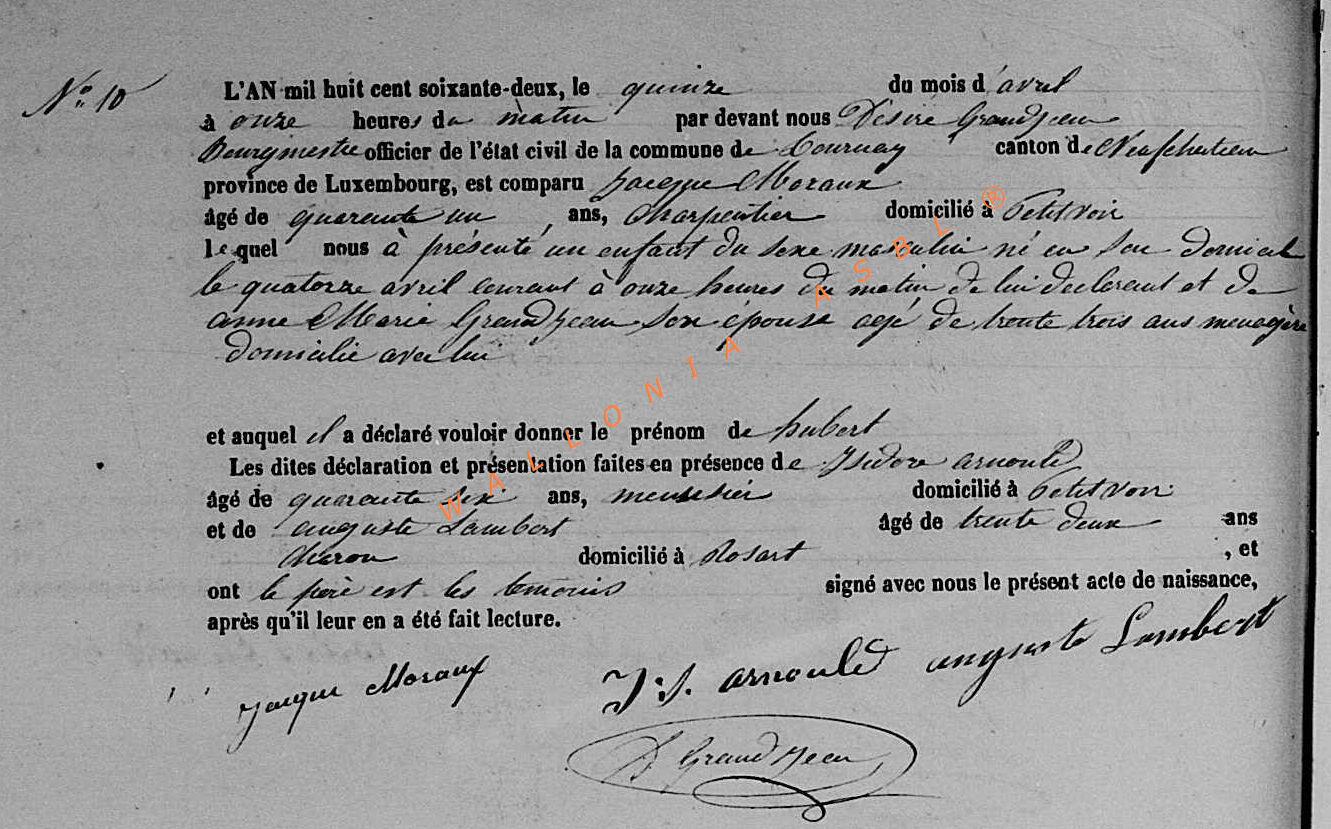 N° 10
L'AN mil huit cent soixante-deux, le quinze du mois d'avril
à onze heures du matin par devant nous Désiré Grandjean
Bourgmestre officier de l'état civil de la commune de Tournay canton de Neufchateau
province de Luxembourg, est comparu Jacque Moraux
âgé de quarante un ans, Charpentier domicilié à Petitvoir
lequel nous à présenté un enfant du sexe masculin né en son domicile
le quatorze avril courant à onze heures du matin de lui declarant et de
anne Marie Grandjean son épouse agé de trente trois ans menagère
domicilié avec lui
et auquel il a déclaré vouloir donner le prénom de hubert
Les dites déclaration et présentation faites en présence de Isidore arnould
âgé de quarante six ans, menusier domicilié à Petitvoir
et de auguste Lambert âgé de trente deux ans
charon domicilié à Rosart , et
ont le père est les temoins signé avec nous le présent acte de naissance,
après qu'il leur en a été fait lecture.
Jacque Moraux J:J. arnould auguste Lambert
D Grandjean
WALLONIA ASBL ®